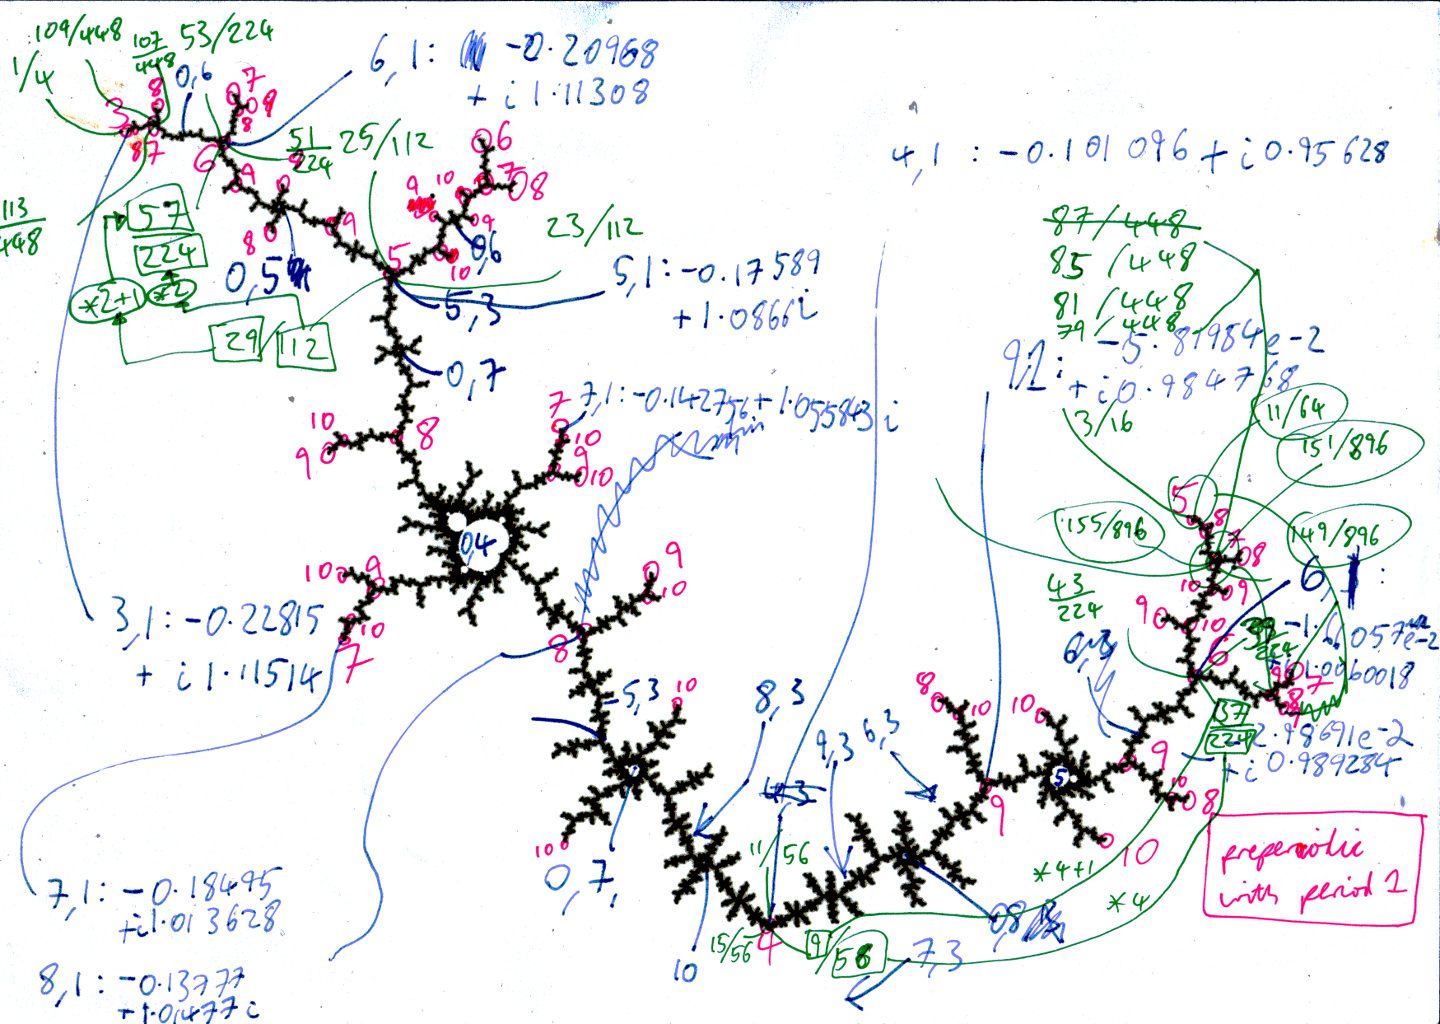 109/448
107/448
53/224
1/4
0,6
6,1: -0.20968
+ i 1.11308
3
8
7
8
8 7
6
9
51/224
25/112
6
7
8
9
10
9
9
8
10
0,6
113/448
57
224
*2+1
*2
29/112
0,5
5
23/112
5,3
5,1: -0.17589
+ 1.0866 i
0,7
4,1 : -0.101096 + i 0.95628
87/448
85/448
81/448
79/448
9,1: -5.81984e-2
+ i 0.984768
3/16
11/64
151/896
155/896
149/896
43/224
7,1: -0.142756 + 1.055843 i
10
9
8
7
10
9
10
0,4
10
9
10
7
9
10
8
3,1: -0.22815
+ i 1.11514
5
8
7
8
10
9
9
10
6
6,
+ i 1.0060018
37/224
2.98691e-2
+ i 0.989284
5,3
10
8,3
4,3
9,3
6,3
8
10
10
5
9
9
10
8
10
0,7,
10
11/56
15/56
4
9/56
0,8
7,3
10
*4+1
*4
preperiodic
with period 1
7,1: -0.18495
+i1.013628
8,1: -0.13777
+1.0477 i